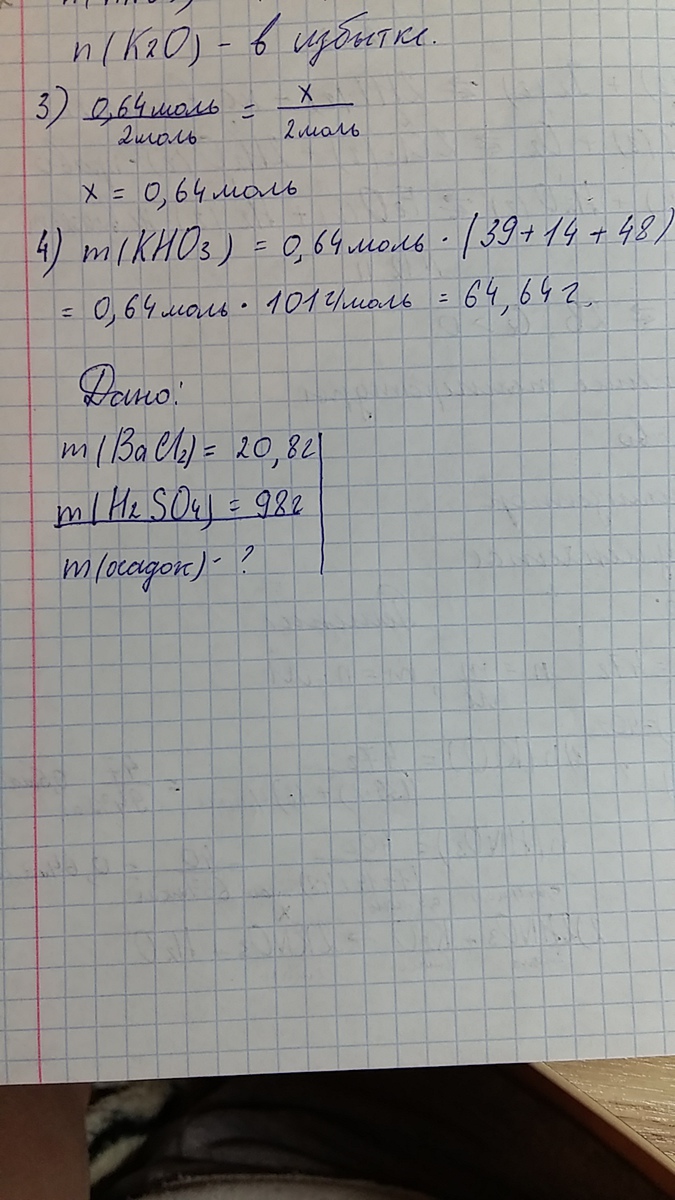 n(K2O) - в избытке.
3) 0,64моль/2моль = x/2моль
x = 0,64моль
4) m(KHO3) = 0,64моль · (39+14+48)
= 0,64моль · 101г/моль = 64,64г.
Дано:
m(BaCl2) = 20,8г
m(H2SO4) = 98г
m(осадок) - ?